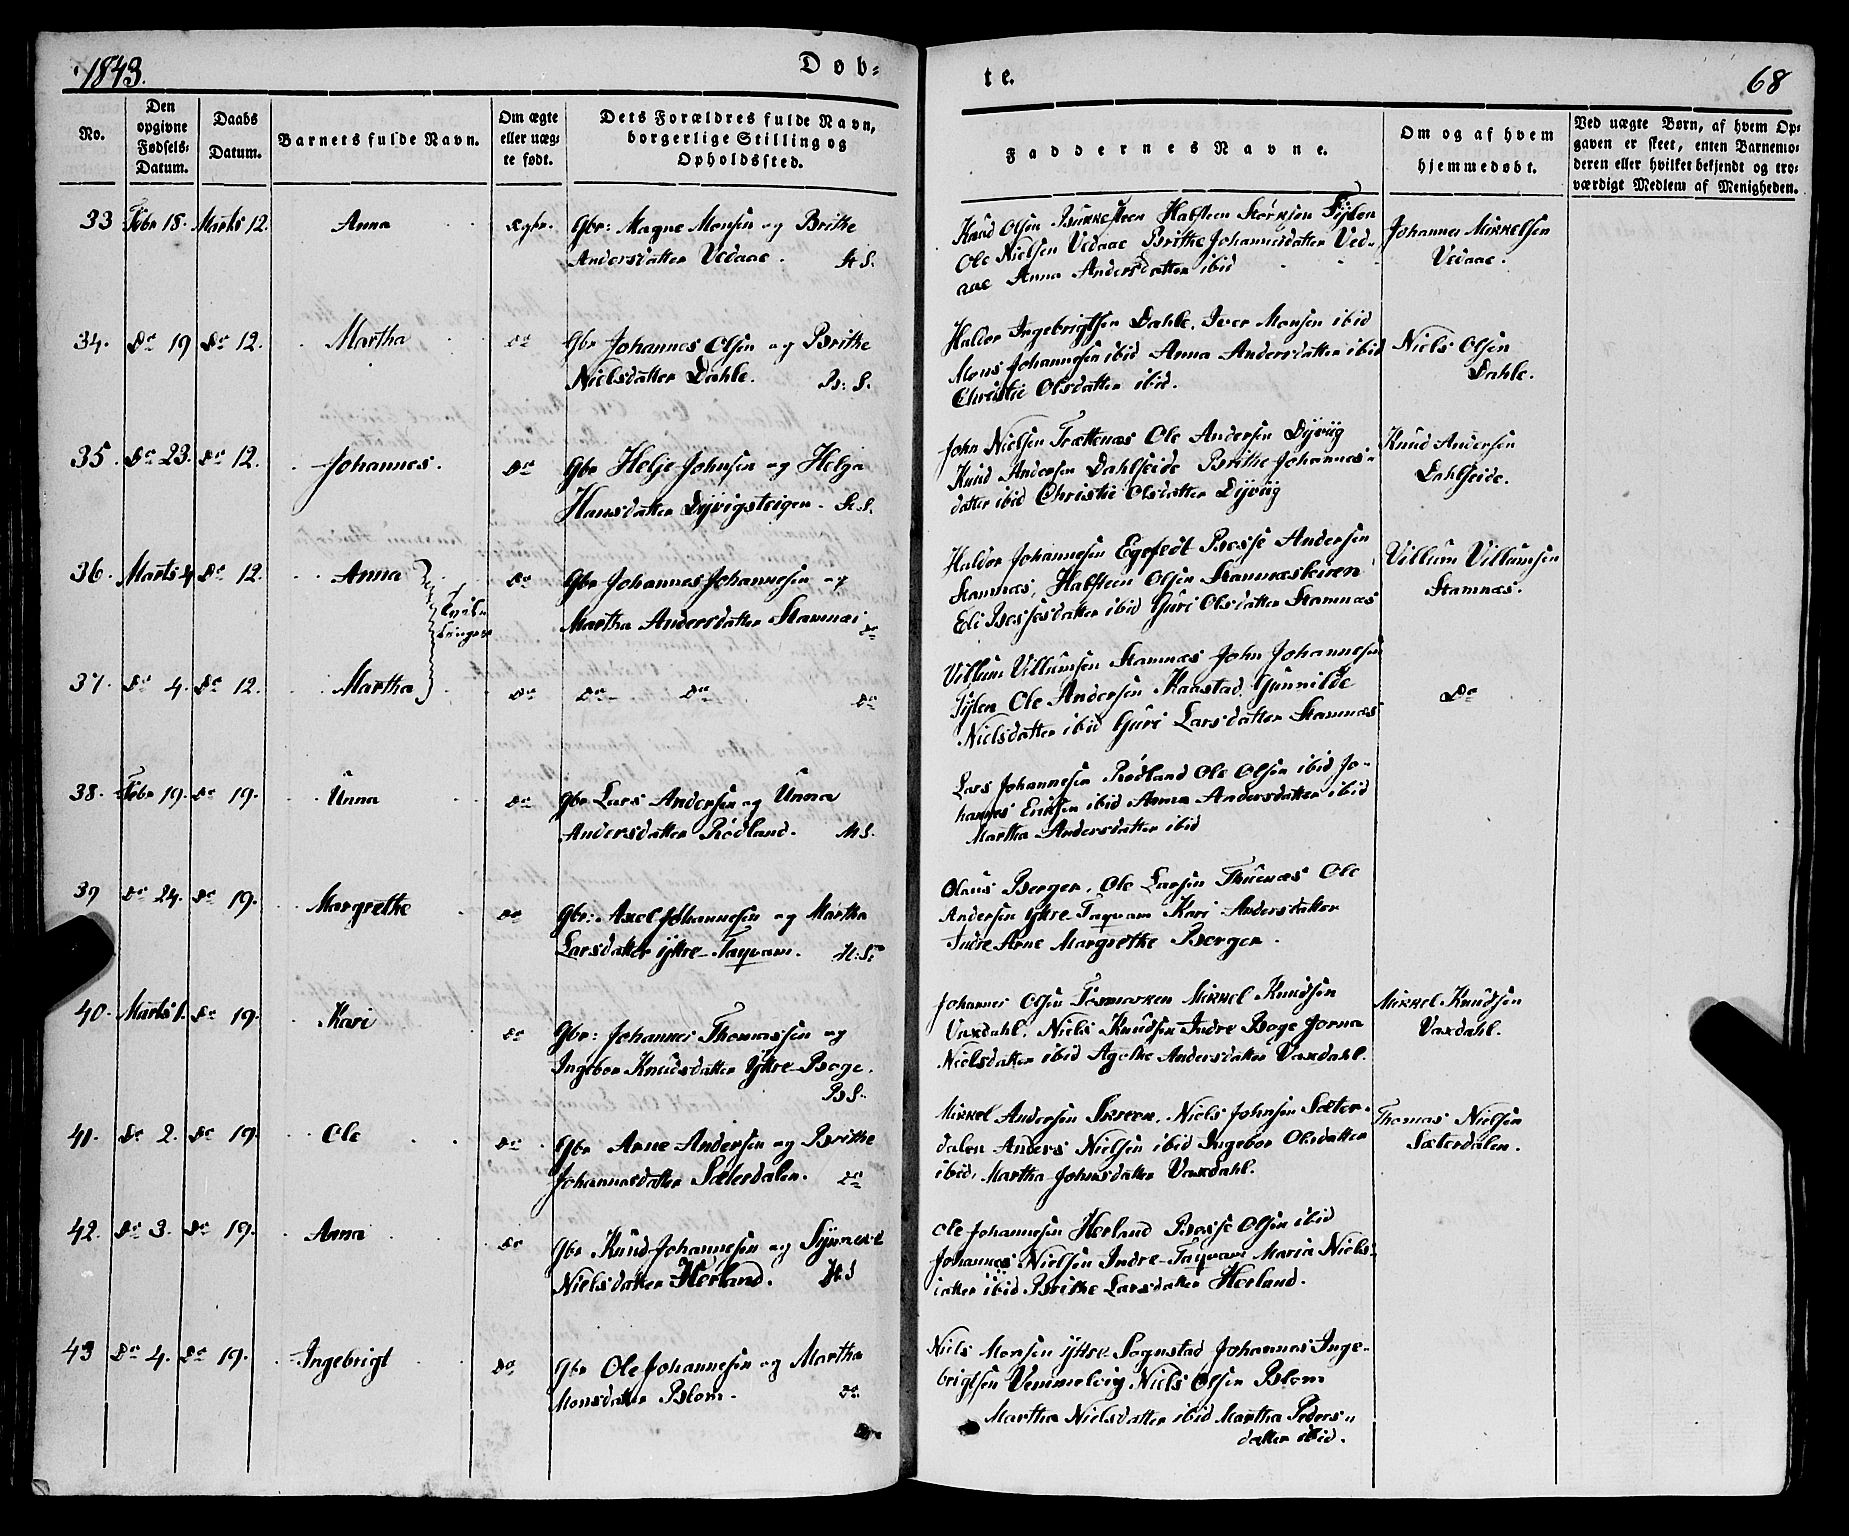 1843.
Døb-
te.
68
No.
Den opgivne Fødsels-Datum.
Daabs Datum.
Barnets fulde Navn.
Om ægte eller uæg-te født.
Dets Forældres fulde Navn, borgerlige Stilling og Opholdssted.
Faddernes Navne.
Om og af hvem hjemmedøbt.
Ved uægte Børn, af hvem Op-gaven er skeet, enten Barnemo-deren eller hvilket bekjendt og tro-værdigt Medlem af Menigheden.
33 Febr 18. Marts 12. Anna ægte. Gbr: Magne Monsen og Brithe
Andersdatter Vedaae. St S.
Knud Olsen Halsteen Størksen Fyslen
Ole Nielsen Vedaae Brithe Johannesdatter Ved-
aae Anna Andersdatter ibid
Johannes Mikkelsen
Vedaae.
34. Do 19 Do 12. Martha do Gbr Johannes Olsen og Brithe
Nielsdatter Dahle. B: S.
Haldor Ingebrigtsen Dahle. Iver Monsen ibid
Mons Johannesen ibid Anna Andersdatter ibid
Christie Olsdatter ibid.
Niels Olsen
Dahle.
35. Do 23. Do 12. Johannes. Do Gbr Helje Johnsen og Helga
Hansdatter Dyvigsteigen. St S.
John Nielsen Trættenæs Ole Andersen Dyviig
Knud Andersen Dahlseide Brithe Johannes-
datter ibid Christie Olsdatter Dyviig
Knud Andersen
Dahlseide.
36. Marts 4 Do 12. Anna Do Gbr Johannes Johannesen og
Martha Andersdatter Stamnæs do
Haldor Johannesen Egefedt Besse Andersen
Stamnæs, Halsteen Olsen Stamnæskiren
Eli Bessesdatter ibid Guri Olsdatter Stamnæs
Villum Villumsen
Stamnæs.
37. Do 4. Do 12. Martha Do Do Do Do
Villum Villumsen Stamnæs John Johannesen
Fyslen Ole Andersen Kaastad Gunnilde
Nielsdatter ibid Guri Larsdatter Stamnæs
Do
38. Febr 19. Do 19. Unna Do Gbr Lars Andersen og Unna
Andersdatter Rødland. M S.
Lars Johannesen Rødland Ole Olsen ibid Jo-
hannes Eriksen ibid Anna Andersdatter ibid
Martha Andersdatter ibid
39 Do 24. Do 19. Margrethe Do Gbr: Axel Johannesen og Martha
Larsdatter Yttre-Taqvam. H: S.
Olaus Berger. Ole Larsen Thuenæs Ole
Andersen Yttre Taqvam Kari Andersdatter
Indre Arne Margrethe Berger.
40. Marts 1. Do 19. Kari Do Gbr: Johannes Thomassen og
Ingebor Knudsdatter Yttre-Boge.
B S.
Johannes Olsen Tosmarken Mikkel Knudsen
Vaxdahl. Niels Knudsen Indre Boge Jorna
Nielsdatter ibid Agathe Andersdatter Vaxdahl.
Mikkel Knudsen
Vaxdahl.
41. Do 2. Do 19. Ole Do Gbr Arne Andersen og Brithe
Johannesdatter Sæterdalen. Do
Mikkel Andersen Skreen. Niels Johnsen Sæter-
dalen Anders Nielsen ibid Ingebor Olsdatter
ibid, Martha Johnsdatter Vaxdahl.
Thomas Nielsen
Sæterdalen.
42. Do 3. Do 19. Anna Do Gbr Knud Johannesen og Synneve
Nielsdatter Herland. H S
Ole Johannesen Herland Besse Olsen ibid
Johannes Nielsen Indre-Taqvam Maria Niels-
datter ibid Brithe Larsdatter Herland.
43 Do 4. Do 19. Ingebrigt Do Gbr Ole Johannesen og Martha
Monsdatter Blom. Do.
Niels Monsen Yttre Sognstad Johannes Inge-
brigtsen Vemmelvig Niels Olsen Blom
Martha Nielsdatter ibid Martha Peders-
datter ibid.